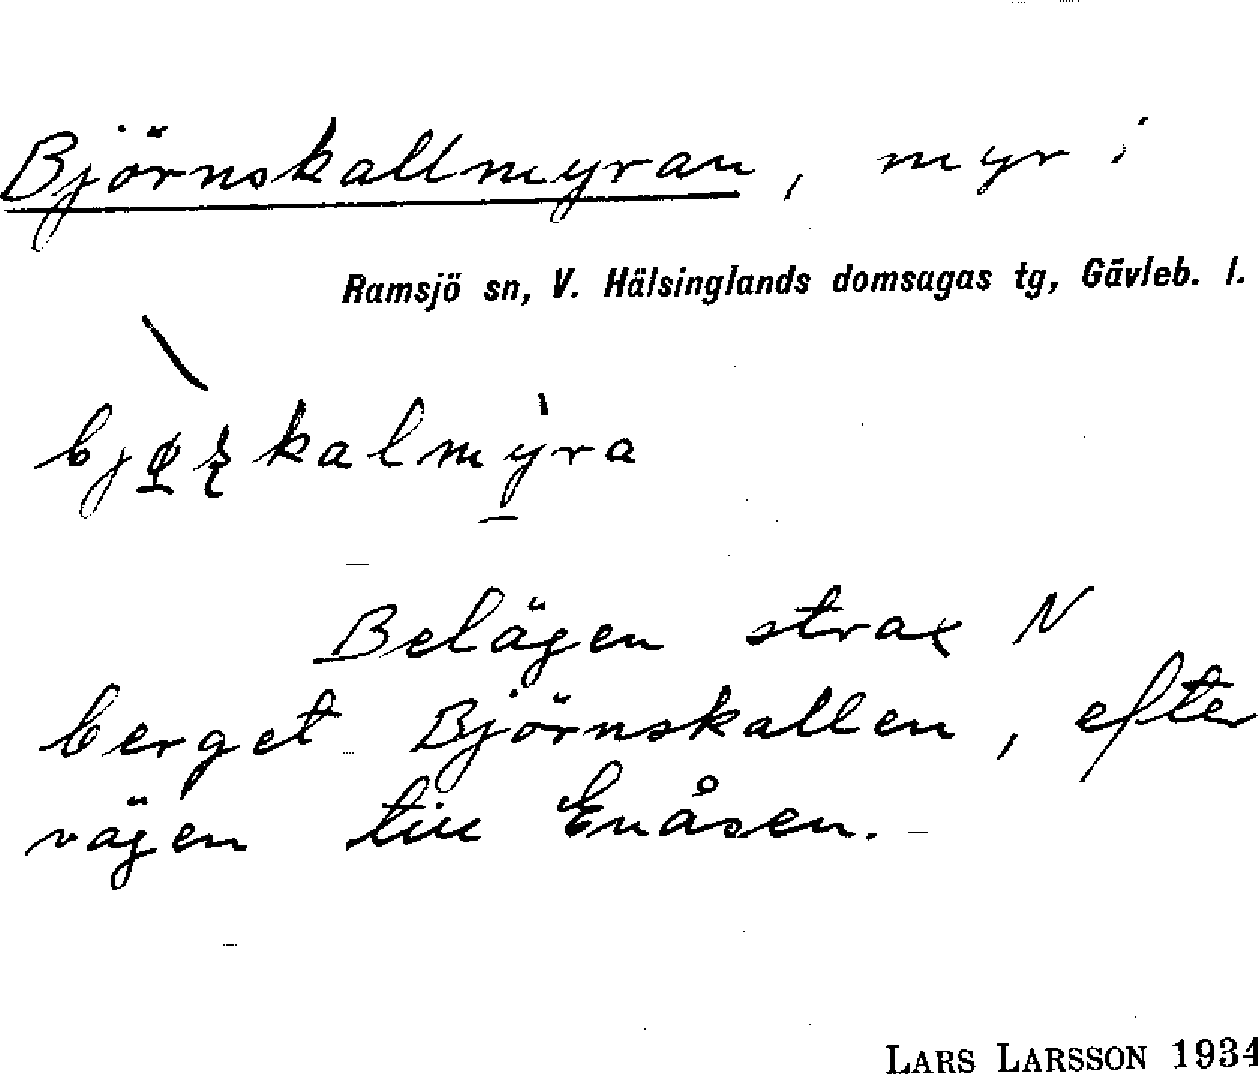 Björnskallmyran, myr i
Ramsjö sn, V. Hälsinglands domsagas tg, Gävleb. l.
Belägen strax N
berget Björnskallen, efter
vägen till Enåsen.
LARS LARSSON 1934